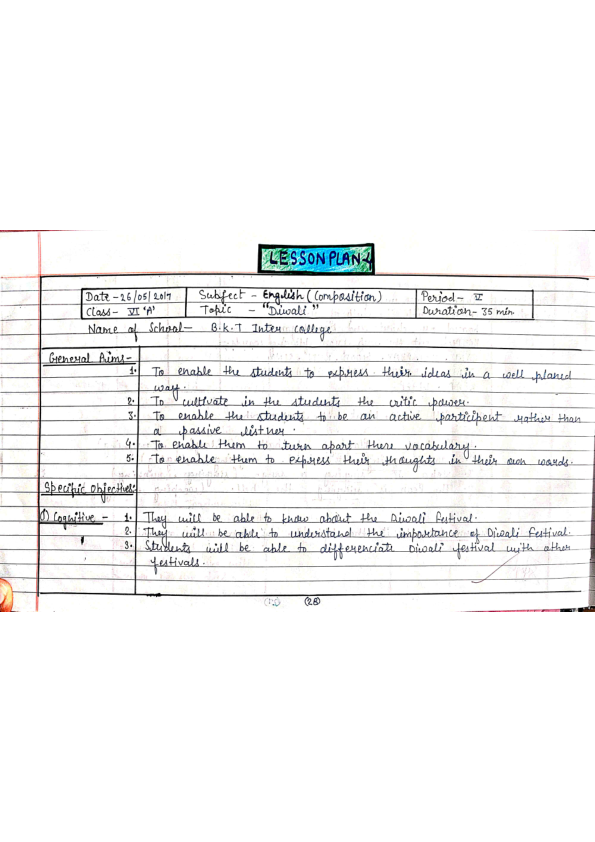 LESSON PLAN
Date - 26/05/2017 Subject - English (Composition) Period - V
Class - VI 'A' Topic - "Diwali" Duration - 35 min
Name of School - B.K.T Inter college
General Aims -
1. To enable the students to express their ideas in a well planed
way.
2. To cultivate in the students the critic power.
3. To enable the students to be an active participent rather than
a passive listner.
4. To enable them to turn apart there vocabulary.
5. To enable them to express their thoughts in their own words.
Specific Objective:
① Cognitive - 1. They will be able to know about the Diwali festival.
2. They will be able to understand the importance of Diwali festival.
3. Students will be able to differenciate Diwali festival with other
festivals.
28